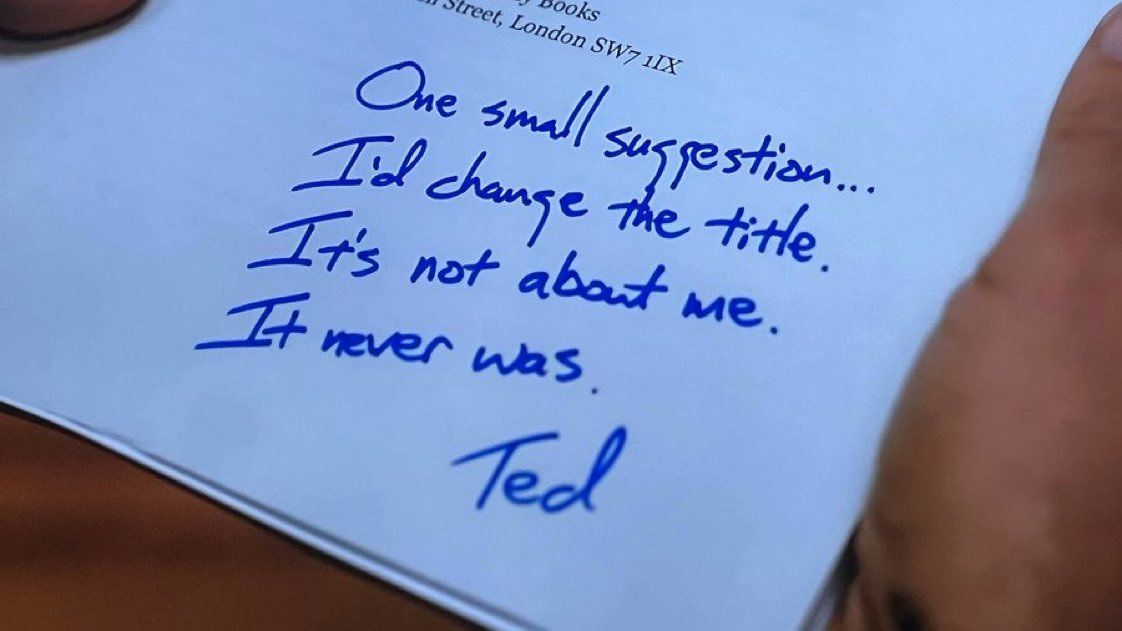 Books
Street, London SW7 1IX
One small suggestion...
I'd change the title.
It's not about me.
It never was.
Ted